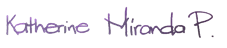 Katherine Miranda P.